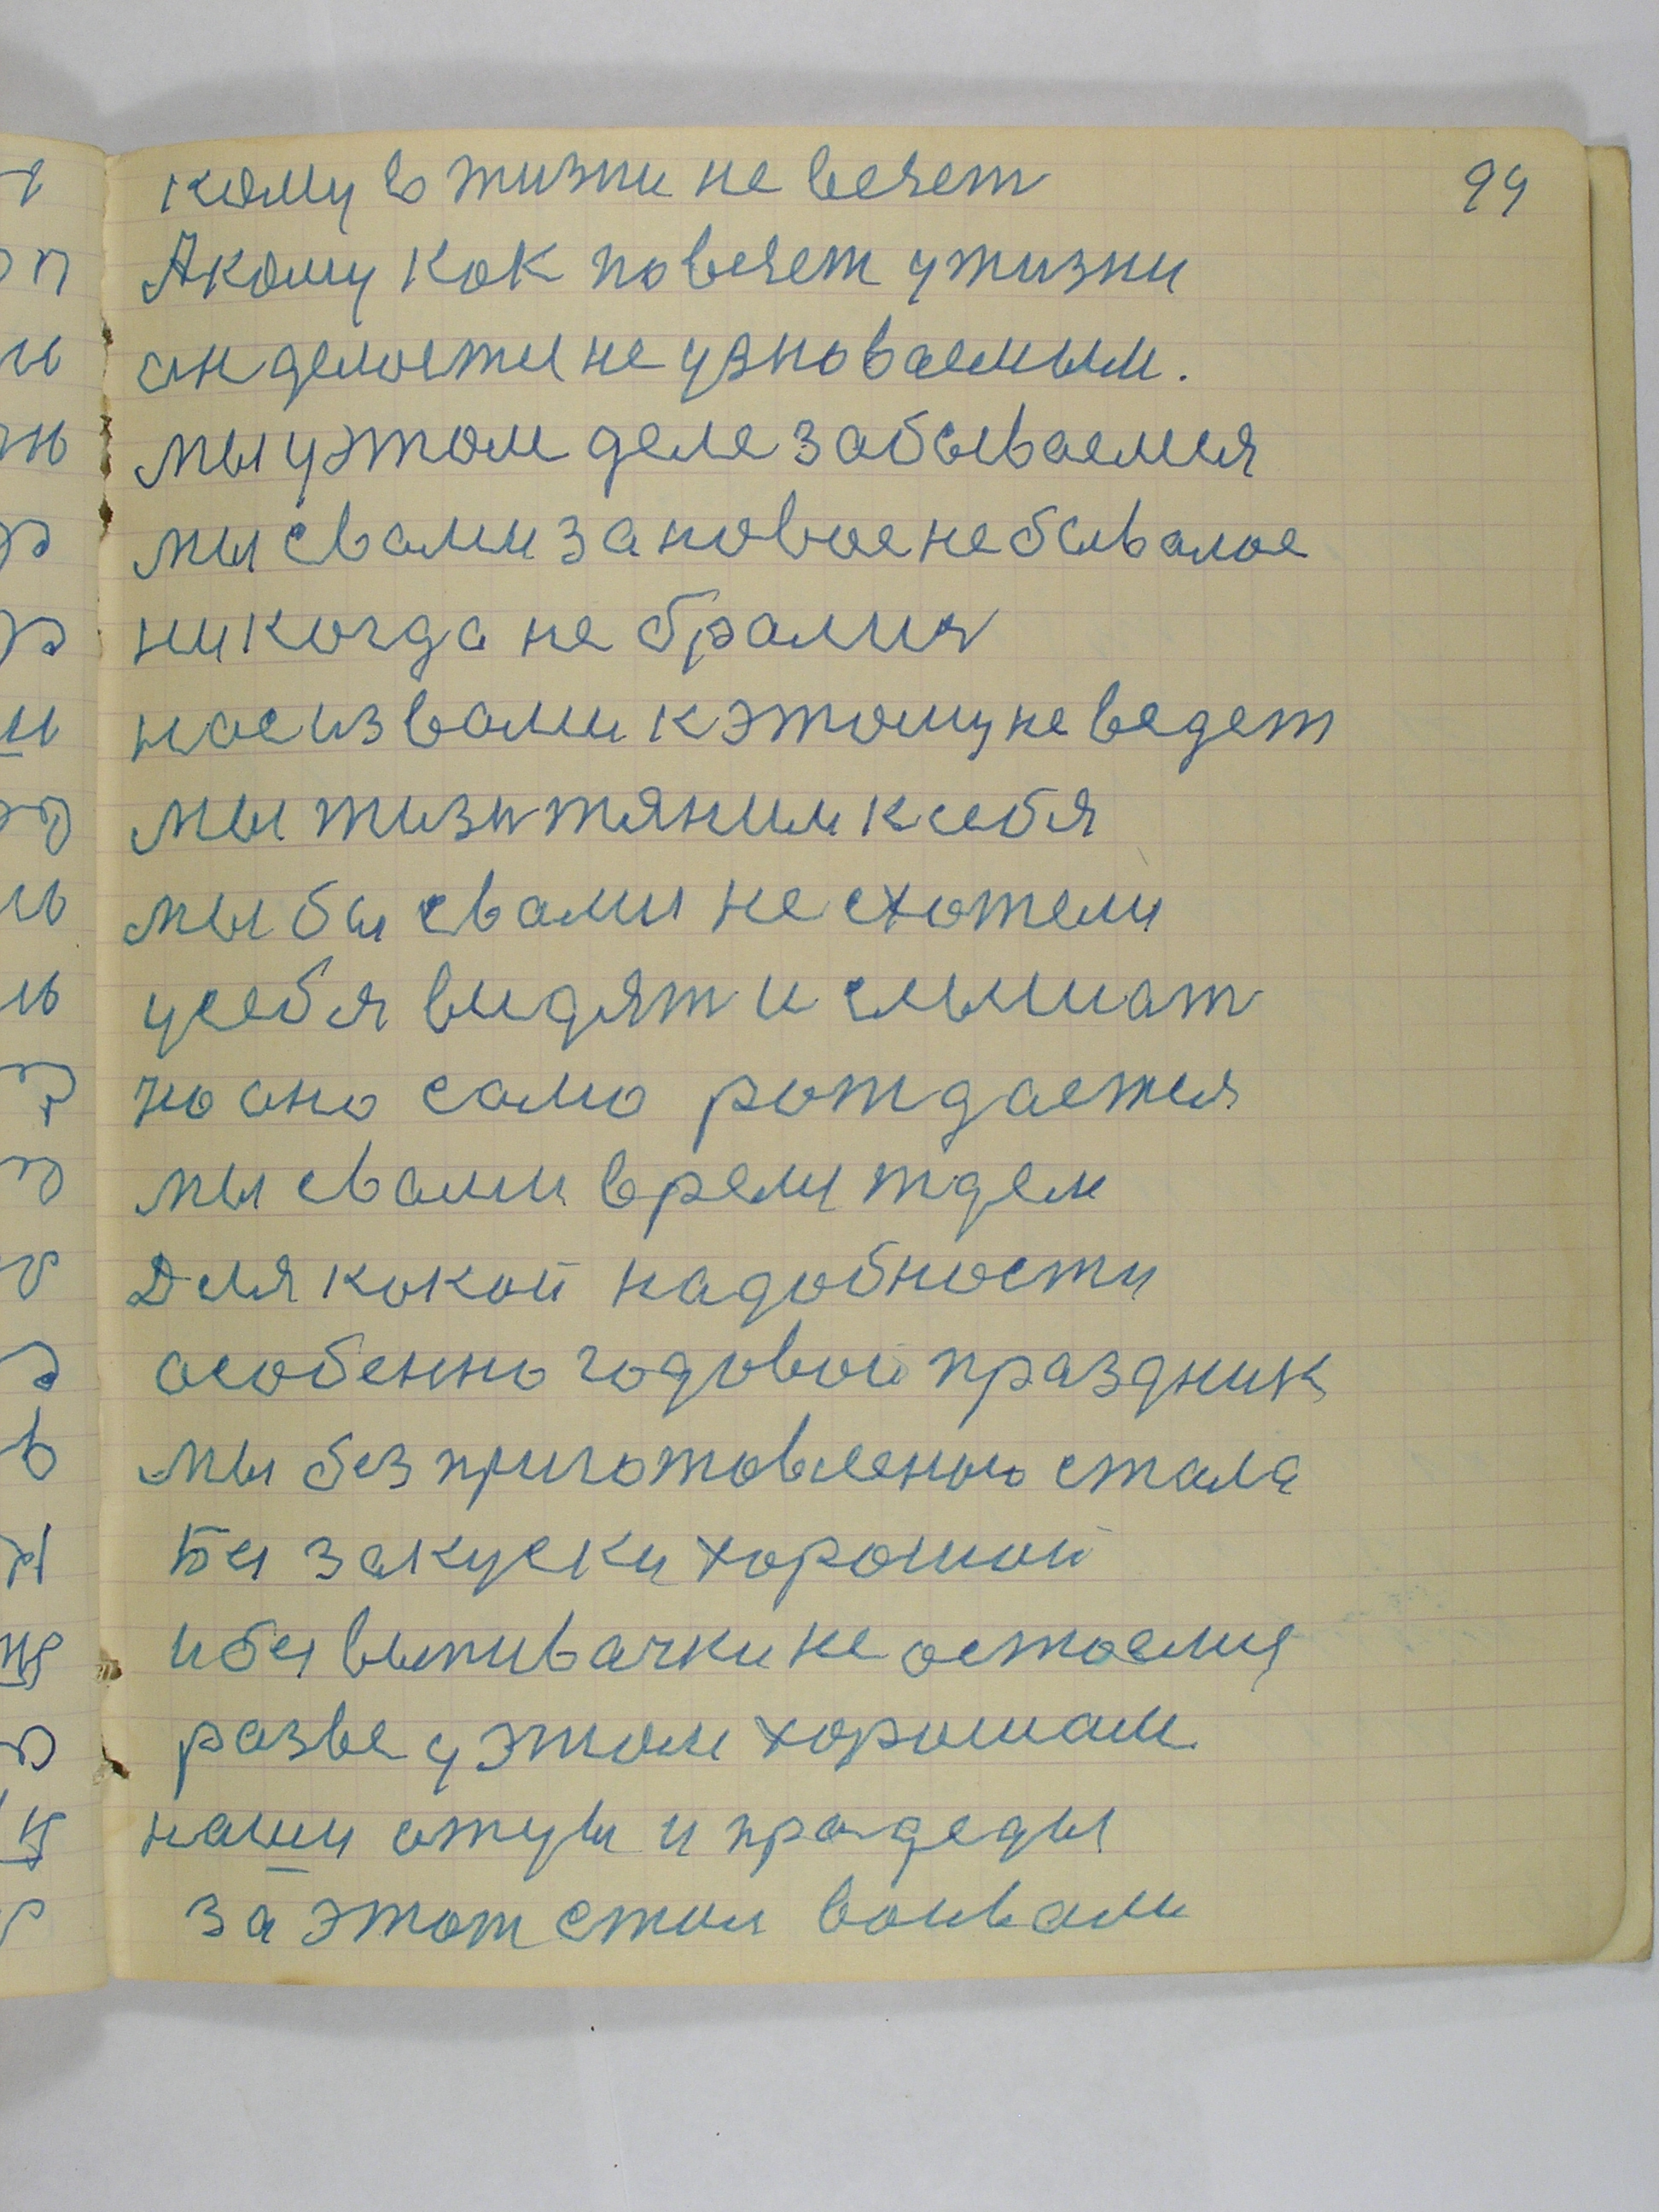 99
кому в жизни не везет
А кому как повезет у жизни
он делается не узноваемым.
мы у этом деле забываемся
мы с вами за новое не бывалое
никогда не бралися
нас из вами к этому не ведет
мы жизь тяним к себя
мы бы с вами не схотели
у себя видят и слышат
но оно само рождается
мы с вами время ждем
Для какой надобности
особенно годовой праздник
мы без приготовленого стала
Без закуски хорошой
и без выпивачки не остаемся
разве у этом хорошам
наши отцы и прадеды
за этот стол